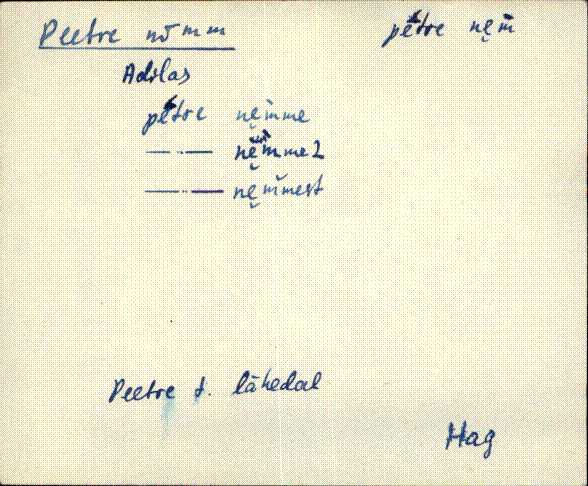 Peetre nõmm pētre ne̮m̄
Adilas
pētre ne̮m̄me
—·— ne̮m̄mel
—·— ne̮m̄mest
Peetre t. lähedal
Hag